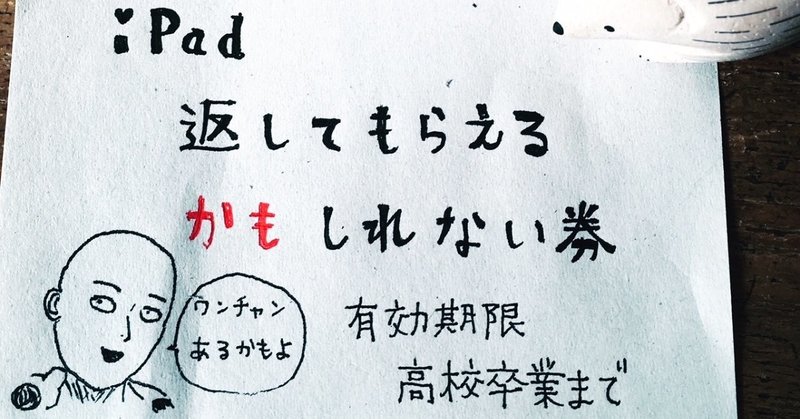 iPad
返してもらえる
かもしれない券
ウンチャン
あるかもよ
有効期限
高校卒業まで